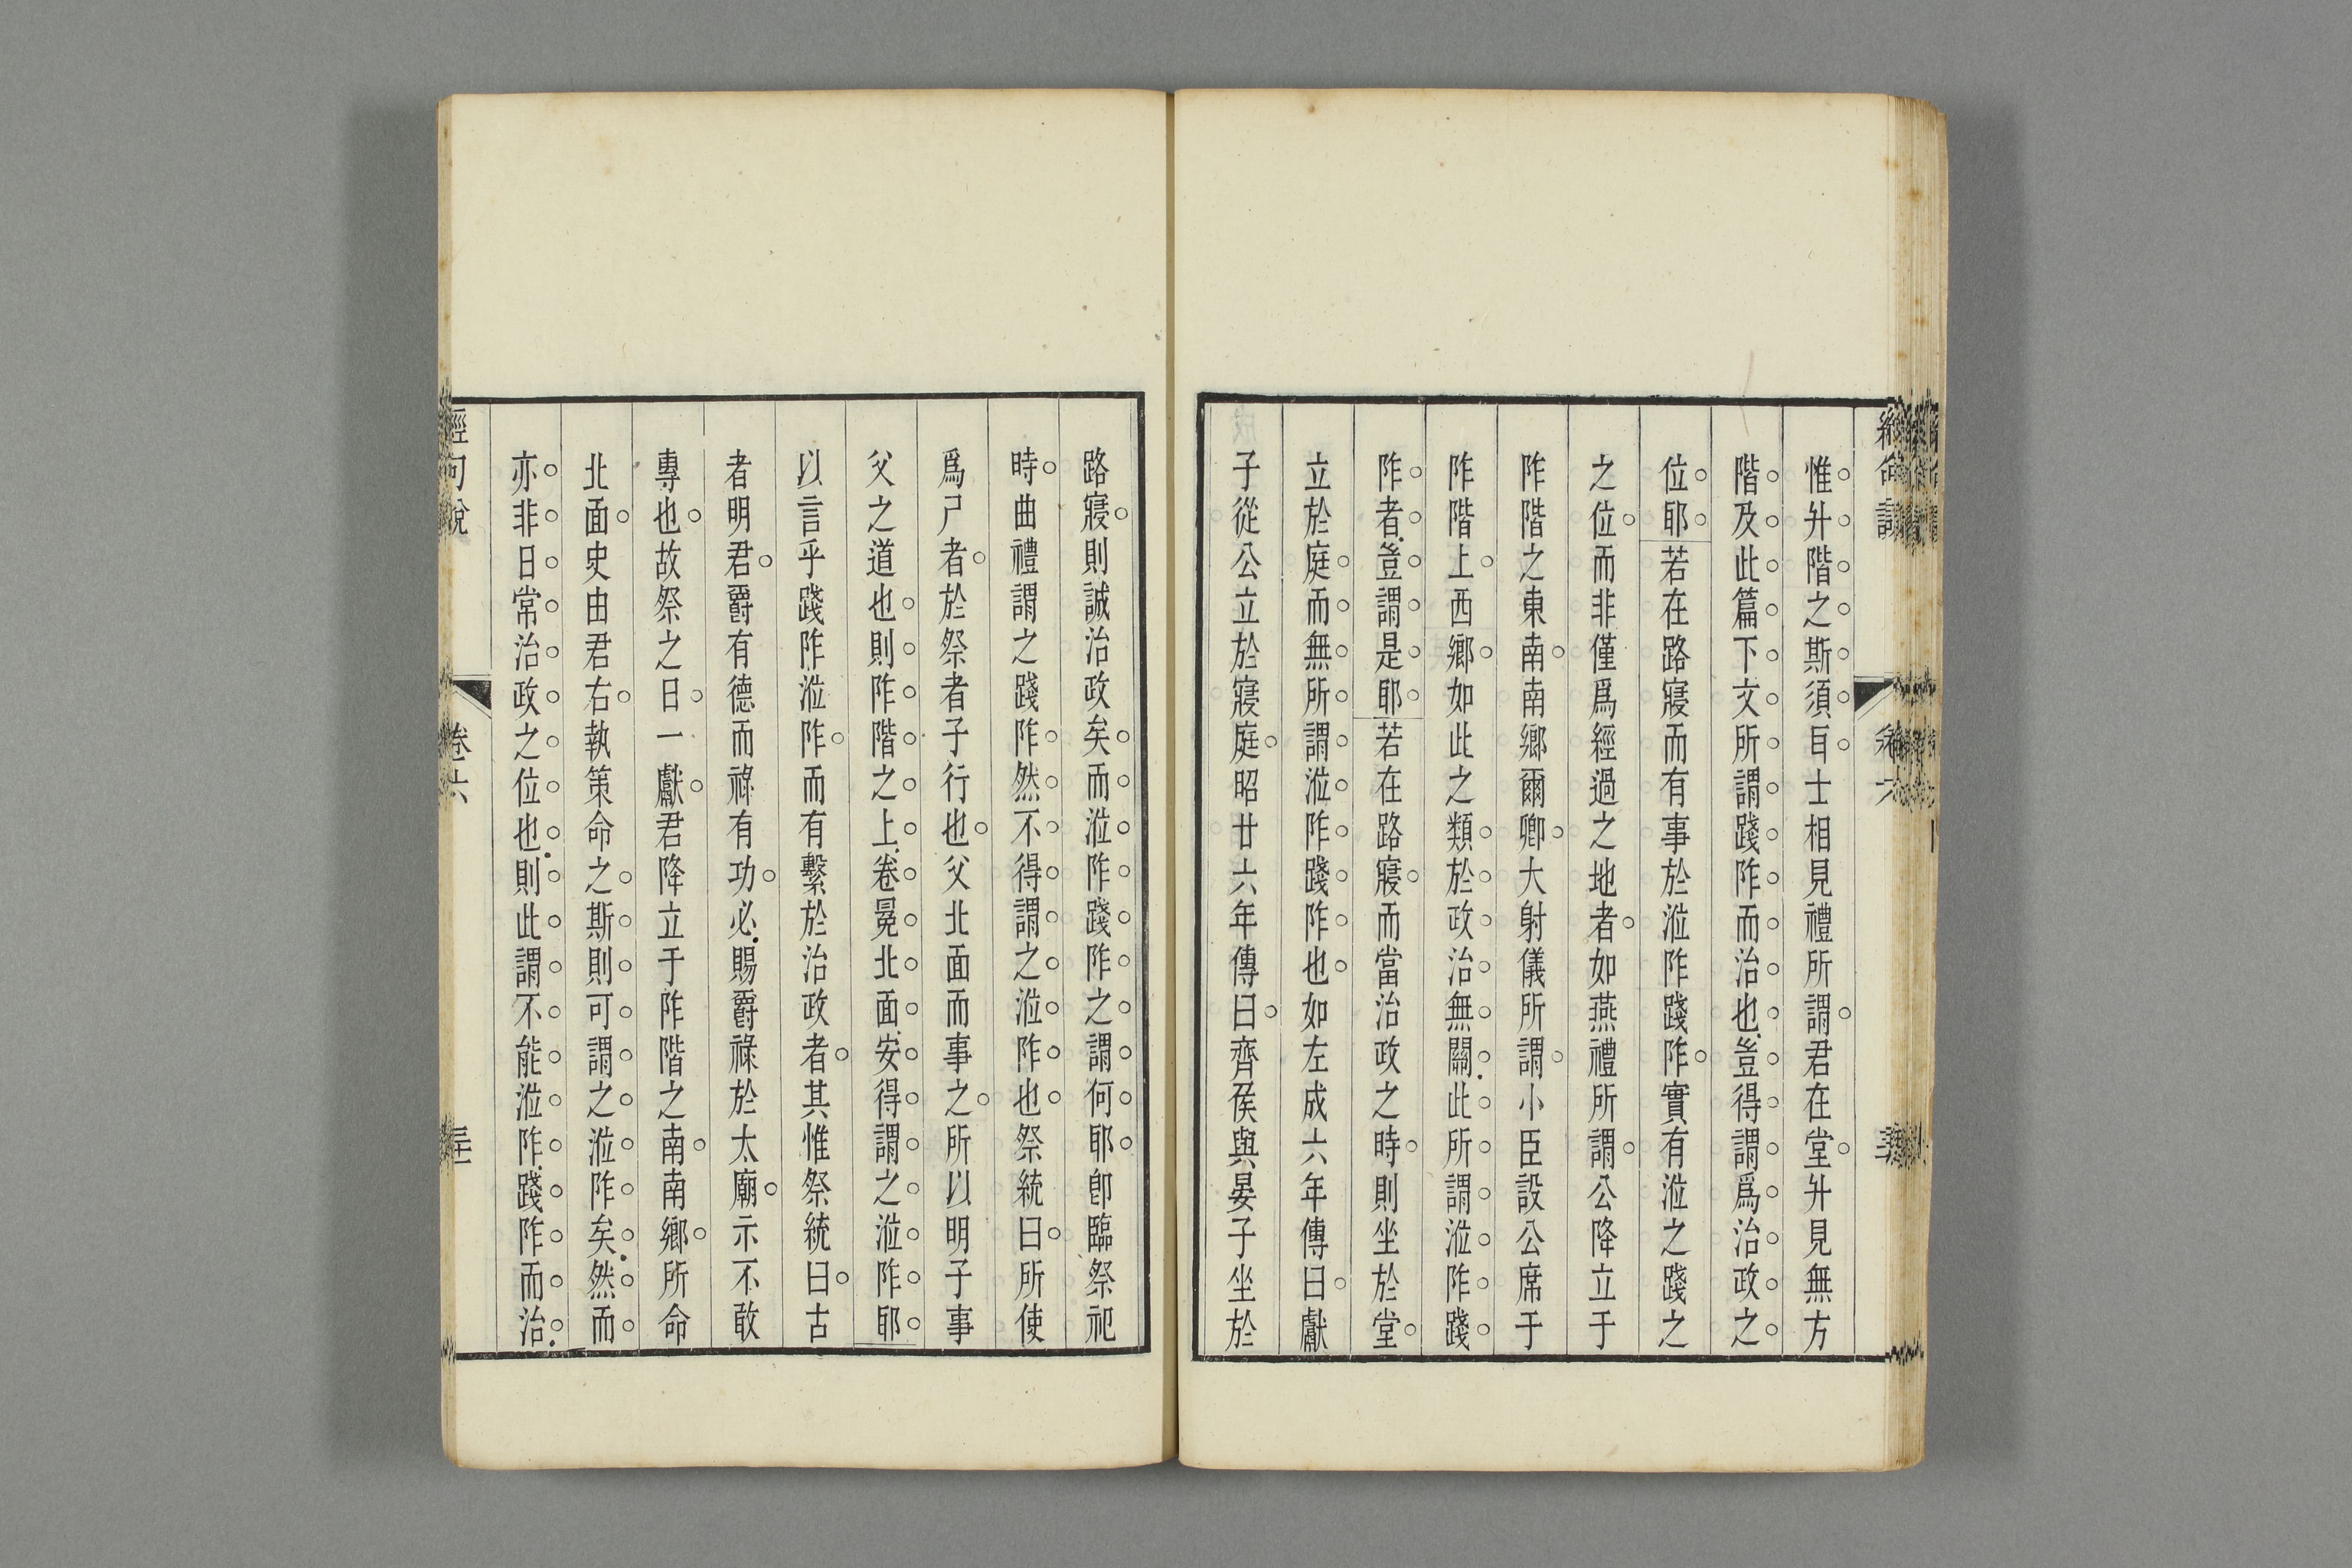 惟升階之斯須耳士相見禮所謂君在堂升見無方
階及此篇下文所謂踐阼而治也豈得謂爲治政之
位耶若在路寢而有事於涖阼踐阼實有涖之踐之
之位而非僅爲經過之地者如燕禮所謂公降立于
阼階之東南南鄉爾卿大射儀所謂小臣設公席于
阼階上西鄉如此之類於政治無關此所謂涖阼踐
阼者豈謂是耶若在路寢而當治政之時則坐於堂
立於庭而無所謂涖阼踐阼也如左成六年傳曰獻
子從公立於寢庭昭廿六年傳曰齊侯與晏子坐於
路寢則誠治政矣而涖阼踐阼之謂何耶卽臨祭祀
時曲禮謂之踐阼然不得謂之涖阼也祭統曰所使
爲尸者於祭者子行也父北面而事之所以明子事
父之道也則阼階之上卷冕北面安得謂之涖阼耶
以言乎踐阼涖阼而有繫於治政者其惟祭統曰古
者明君爵有德而祿有功必賜爵祿於太廟示不敢
專也故祭之日一獻君降立于阼階之南南鄉所命
北面史由君右執策命之斯則可謂之涖阼矣然而
亦非日常治政之位也則此謂不能涖阼踐阼而治
經句說 卷六